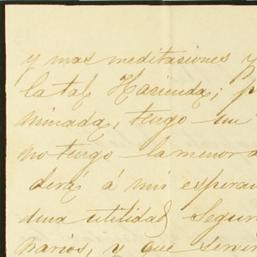 y mas meditasiones y
la tal Hasienda; p
minada, tengo un
no tengo la menor a
derá á mis espera
una utilidad segur
narios, y que servi